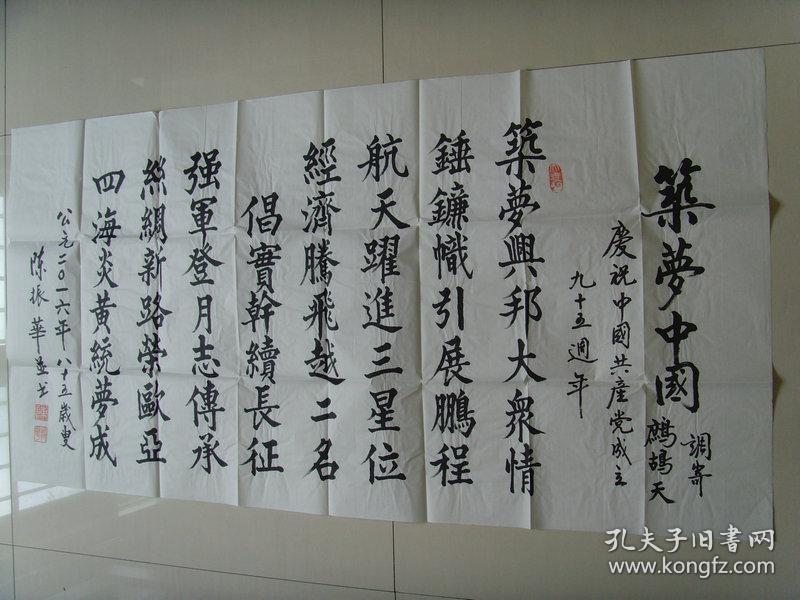 築夢中國
調寄
鷓鴣天
慶祝中國共産党成立
九十五週年
築夢興邦大衆情
錘鐮幟引展鵬程
航天躍進三星位
經濟騰飛越二名
倡實幹續長征
强軍登月志傳承
絲綢新路榮歐亞
四海炎黃統夢成
公元二〇一六年 八十五歲叟
陈振華並书
孔夫子旧書网
www.kongfz.com